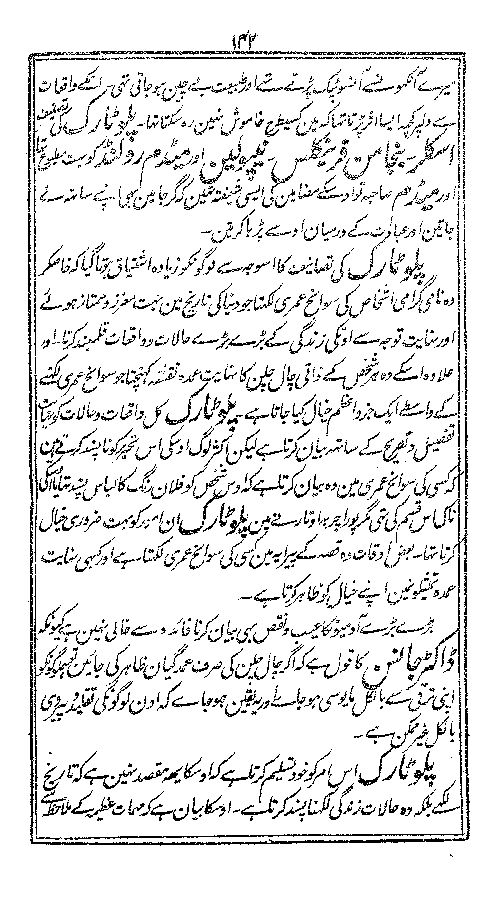 ۱۴۲
میرے آنکھونسے آنسو ٹپک پڑتے تھے اور طبیعت بے چین ہوجاتی تھی۔ اسکے واقعات
سے دلپر کچھہ ایسا اثر پڑتا تھا کہ مین کسیطرح خاموش نہین رہ سکتا تھا۔ پلوٹارک کی تصنیف
اسکلر۔ بنجامن فرینکلن۔ نیپولین اور میڈم رولنڈ کو بہت مطبوع تھا
اور میڈم صاحبہ تو اوسکے مضامین کی ایسی شیفتہ تھین کہ گرجا مین بھی اپنے ساتھہ لے
جاتین اور عبادت کے درمیان اوسے پڑھا کرتین۔
پلوٹارک کی تصانیف کا اسوجہ سے لوگونکو زیادہ اشتیاق بڑھتا گیا کہ خاصکر
وہ نامی گرامی اشخاص کی سوانح عمری لکھتا جو دنیا کی تاریخ مین بہت معزز و ممتاز ہوئے
اور نہایت توجہ سے اونکی زندگی کے بڑے بڑے حالات و واقعات قلمبند کرتا۔ اور
علاوہ اسکے وہ ہر شخص کے ذاتی چال چلن کا نہایت عمدہ نقشہ کھینچتا جو سوانح عمری لکھنے
کے واسطے ایک جزو اعظم خیال کیا جاتا ہے۔ پلوٹارک کل واقعات و حالات کو نہایت
تفصیل و تصریح کے ساتھہ بیان کرتا ہے لیکن اکثر لوگ اوسکی اس تحریر کو ناپسند کرتے ہین
کہ کسی کی سوانح عمری مین وہ بیان کرتا ہے کہ اوس شخص کو فلان رنگ کا لباس پسند تھا یا اوسکی
ناک اس قسم کی تھی مگر پورا چربہ اوتارنے مین پلوٹارک ان امور کو بہت ضروری خیال
کرتا تھا۔ بعض اوقات وہ قصہ کے پیرایہ مین کسی کی سوانح عمری لکھتا ہے اور کبھی نہایت
عمدہ تمثیلونمین اپنے خیال کو ظاہر کرتا ہے۔
بڑے بڑے آدمیونکا عیب و نقص بھی بیان کرنا فائدہ سے خالی نہین ہے کیونکہ
ڈاکٹر جانسن کا قول ہے کہ اگر چال چلن کی صرف عمدگیان ظاہر کی جائین تو ہمکو
اپنی ترقی سے بالکل مایوسی ہوجاے اور یقین ہوجاے کہ ادن لوگونکی تقلید و پیروی
بالکل غیر ممکن ہے۔
پلوٹارک اس امر کو خود تسلیم کرتا ہے کہ اوسکا یہہ مقصد نہین ہے کہ تاریخ
لکھے بلکہ وہ حالات زندگی لکھنا پسند کرتا ہے۔ اوسکا بیان ہے کہ مہمات عظیمہ کے ملاحظہ سے